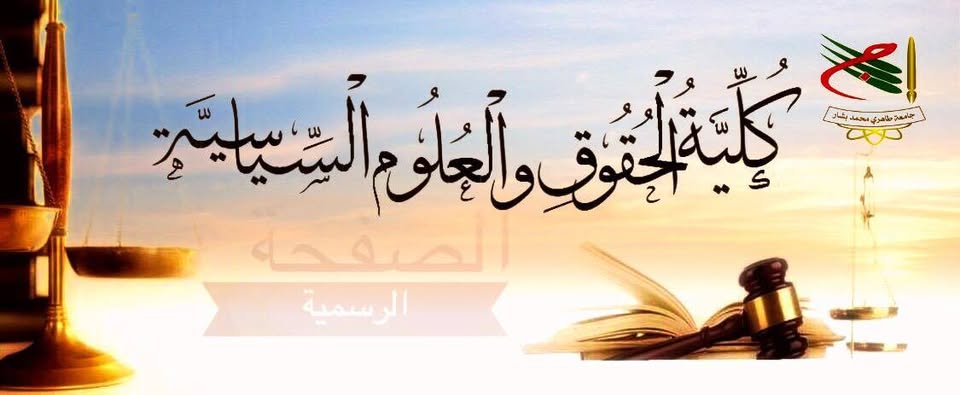 كُلِّيَّةُ الْحُقُوقِ وَالْعُلُومِ السِّيَاسِيَّةِ
جامعة طاهري محمد بشار
الصفحة
الرسمية